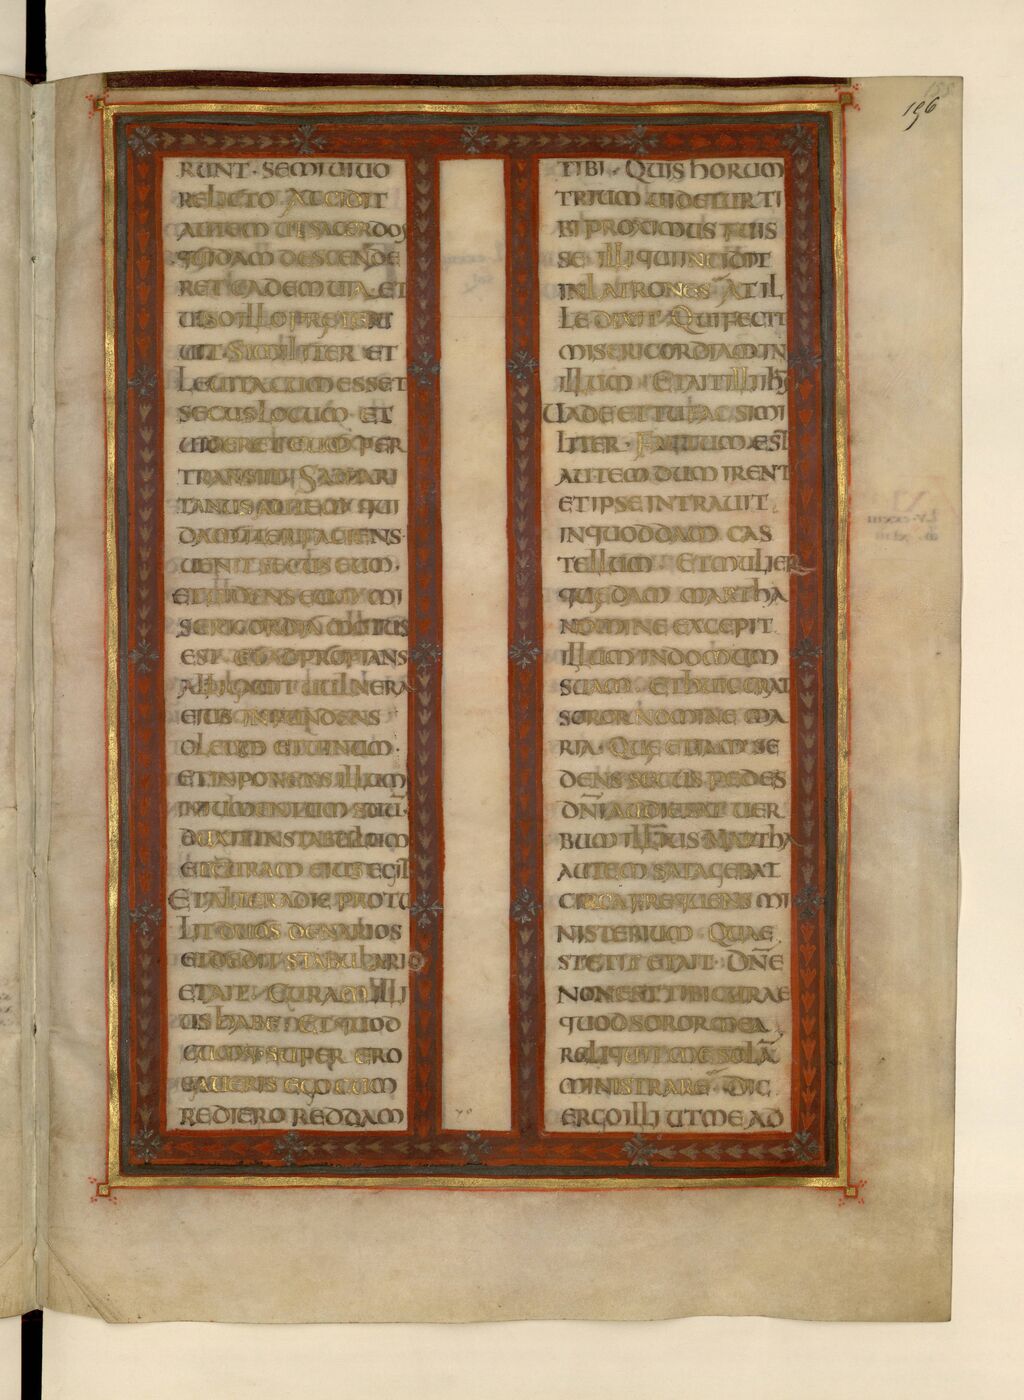 196
RUNT · SEMIUIUO
RELICTO · ACCIDIT
AUTEM UT SACERDOS
QUIDAM DESCENDE
RET EADEM UIA · ET
UISO ILLO PRETERI
UIT · SIMILITER ET
LEUITA CUM ESSET
SECUS LOCUM · ET
UIDERET EUM PER
TRANSIIT · SAMARI
TANUS AUTEM QUI
DAM ITER FACIENS ·
UENIT SECUS EUM ·
ET UIDENS EUM MI
SERICORDIA MOTUS
EST · ET ADPROPIANS
ALLIGAUIT UULNERA
EIUS INFUNDENS
OLEUM ET UINUM ·
ET INPONENS ILLUM
IN IUMENTUM SUU̅ ·
DUXIT IN STABULUM
ET CURAM EIUS EGIT
ET ALTERA DIE PROTU
LIT DUOS DENARIOS
ET DEDIT STABULARIO
ET AIT · CURAM ILLI
US HABE · ET QUOD
CUMQ· SUPER ERO
GAUERIS EGO CUM
REDIERO REDDAM
TIBI · QUIS HORUM
TRIUM UIDETUR TI
BI PROXIMUS FUIS
SE ILLI QUI INCIDIT
IN LATRONES · AT IL
LE DIXIT · QUI FECIT
MISERICORDIAM IN
ILLUM · ET AIT ILLI IH̅S
UADE ET TU FAC SIMI
LITER · FACTUM EST
AUTEM DUM IRENT
ET IPSE INTRAUIT
IN QUODDAM CAS
TELLUM · ET MULIER
QUEDAM MARTHA
NOMINE EXCEPIT
ILLUM IN DOMUM
SUAM · ET HUIC ERAT
SOROR NOMINE MA
RIA · QUE ETIAM SE
DENS SECUS PEDES
DN̅I AUDIEBAT UER
BUM ILLIUS · MARTHA
AUTEM SATAGEBAT
CIRCA FREQUENS MI
NISTERIUM · QUAE
STETIT ET AIT · DN̅E
NON EST TIBI CURAE
QUOD SOROR MEA
RELIQUIT ME SOLA̅
MINISTRARE · DIC
ERGO ILLI UT ME AD